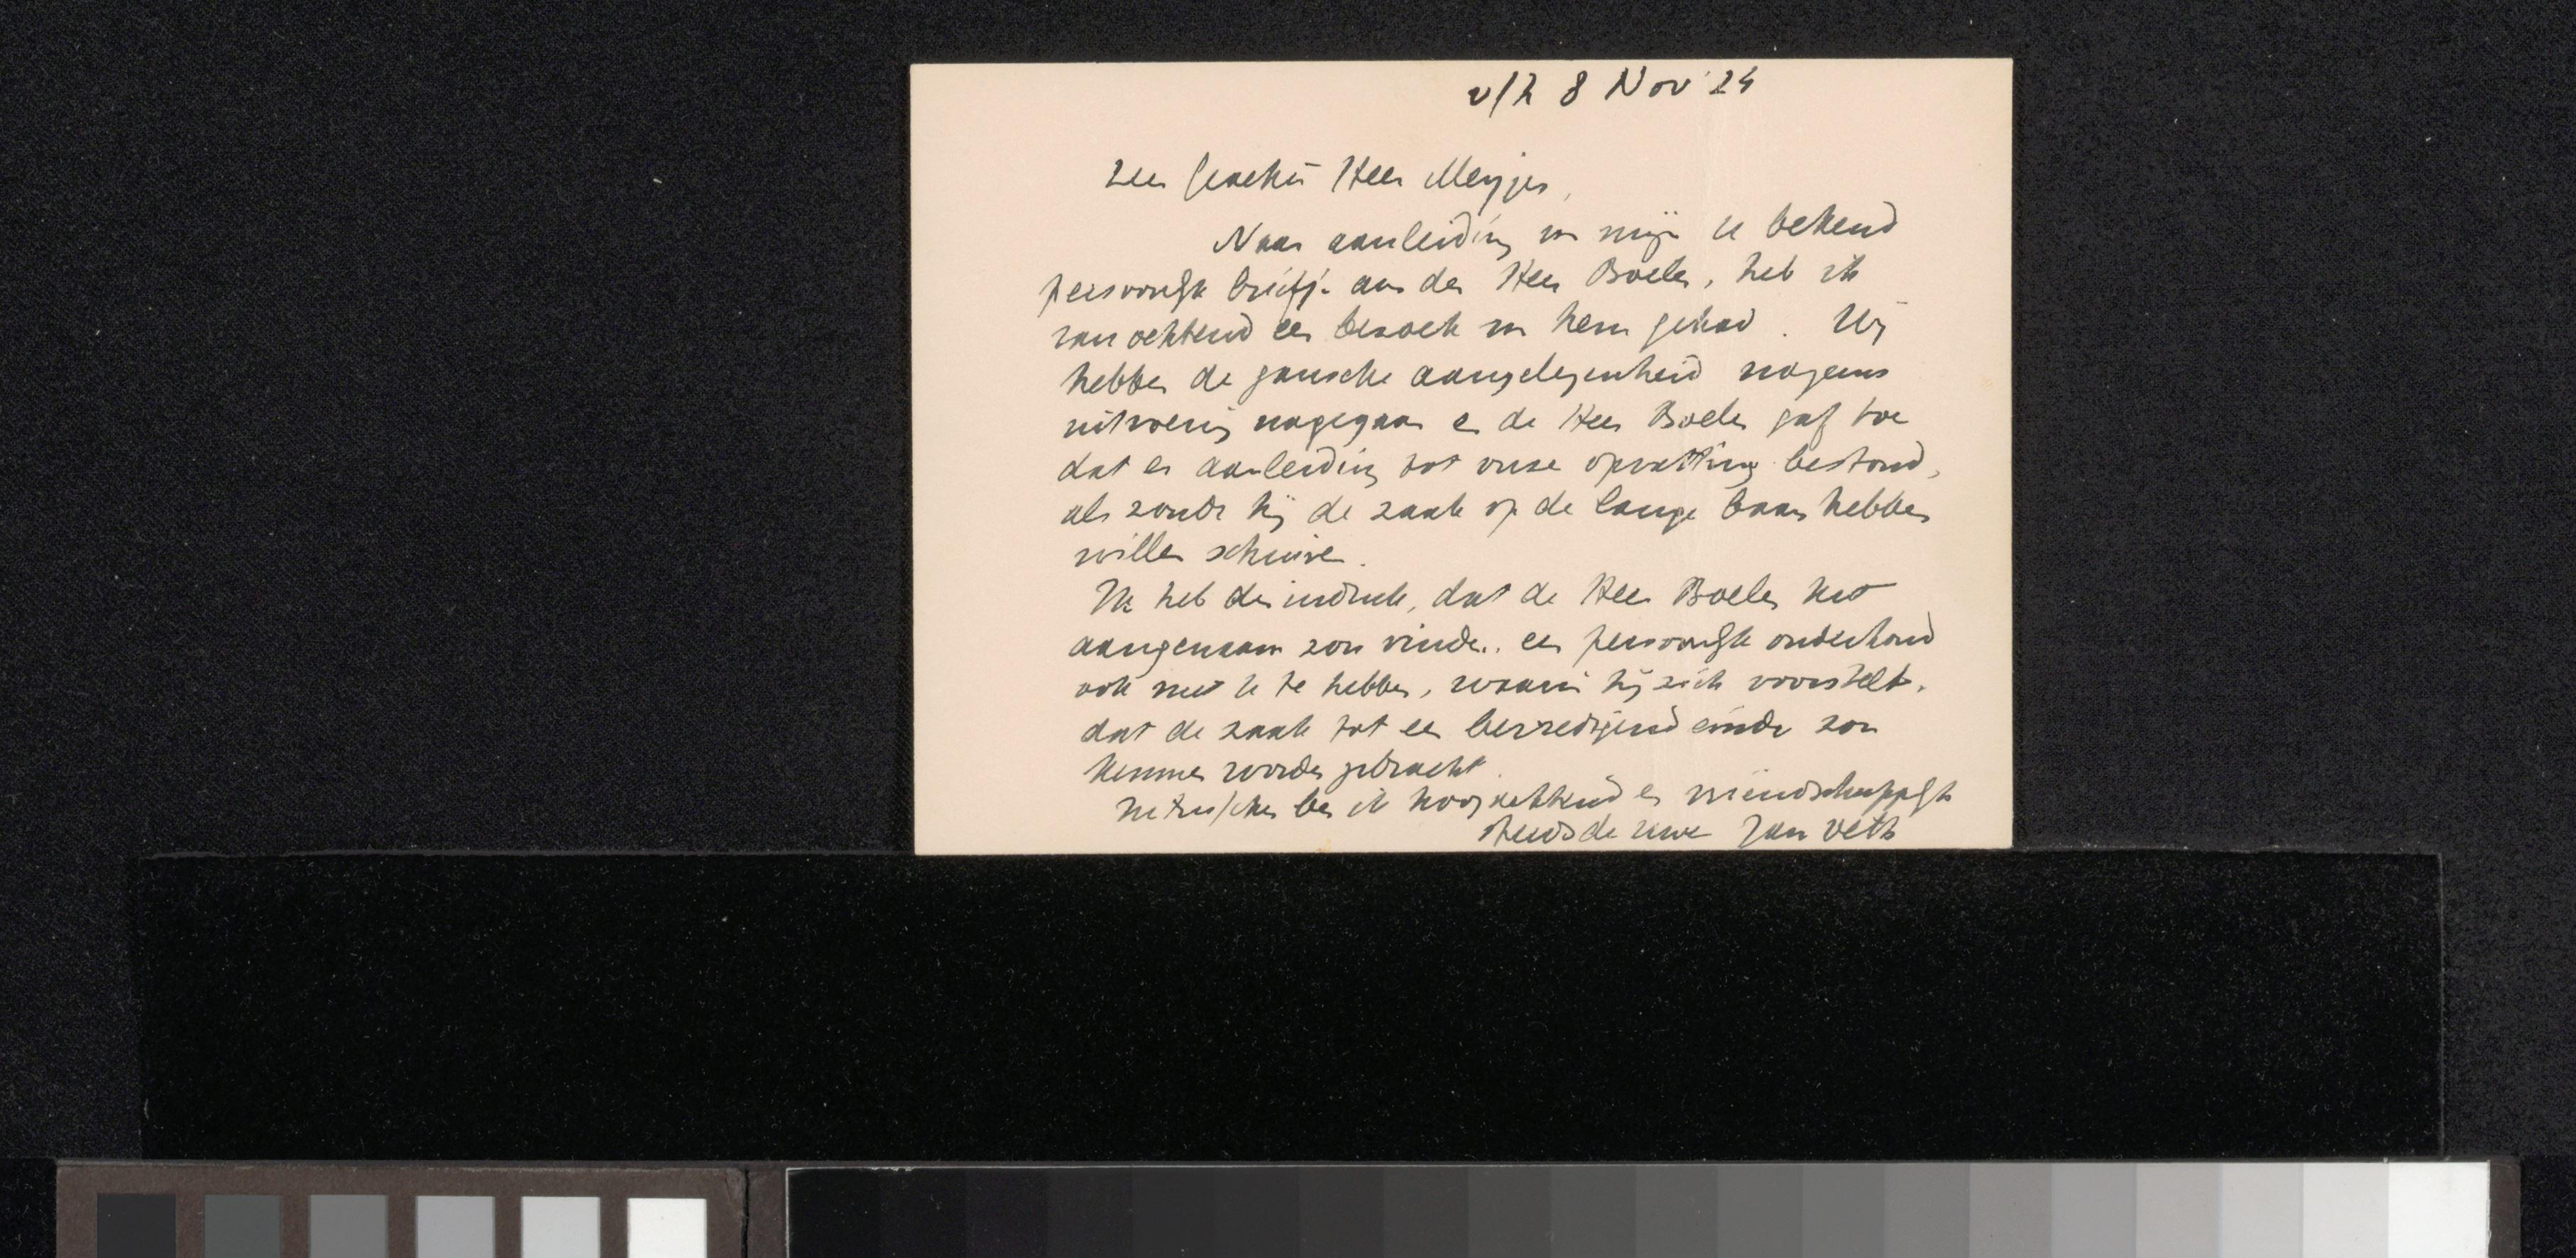 v/h 8 Nov '24
Zeer Geachte Heer Meyjes,
Naar aanleiding van mijn U bekend
persoonlijk briefje aan den Heer Boelen, heb ik
van ochtend een bezoek van hem gehad. Wij
hebben de gansche aangelegenheid nogeens
uitvoerig nagegaan en de Heer Boelen gaf toe
dat er aanleiding tot onze opvatting bestond,
als zoude hij de zaak op de lange baan hebben
willen schuiven.
Ik heb den indruk, dat de Heer Boelen het
aangenaam zou vinden een persoonlijk onderhoud
ook met U te hebben, waarin hij zich voorstelt,
dat de zaak tot een bevredigend einde zou
kunnen worden gebracht.
Intusschen ben ik hoogachtend en vriendschappelijk
steeds de uwe Jan Veth